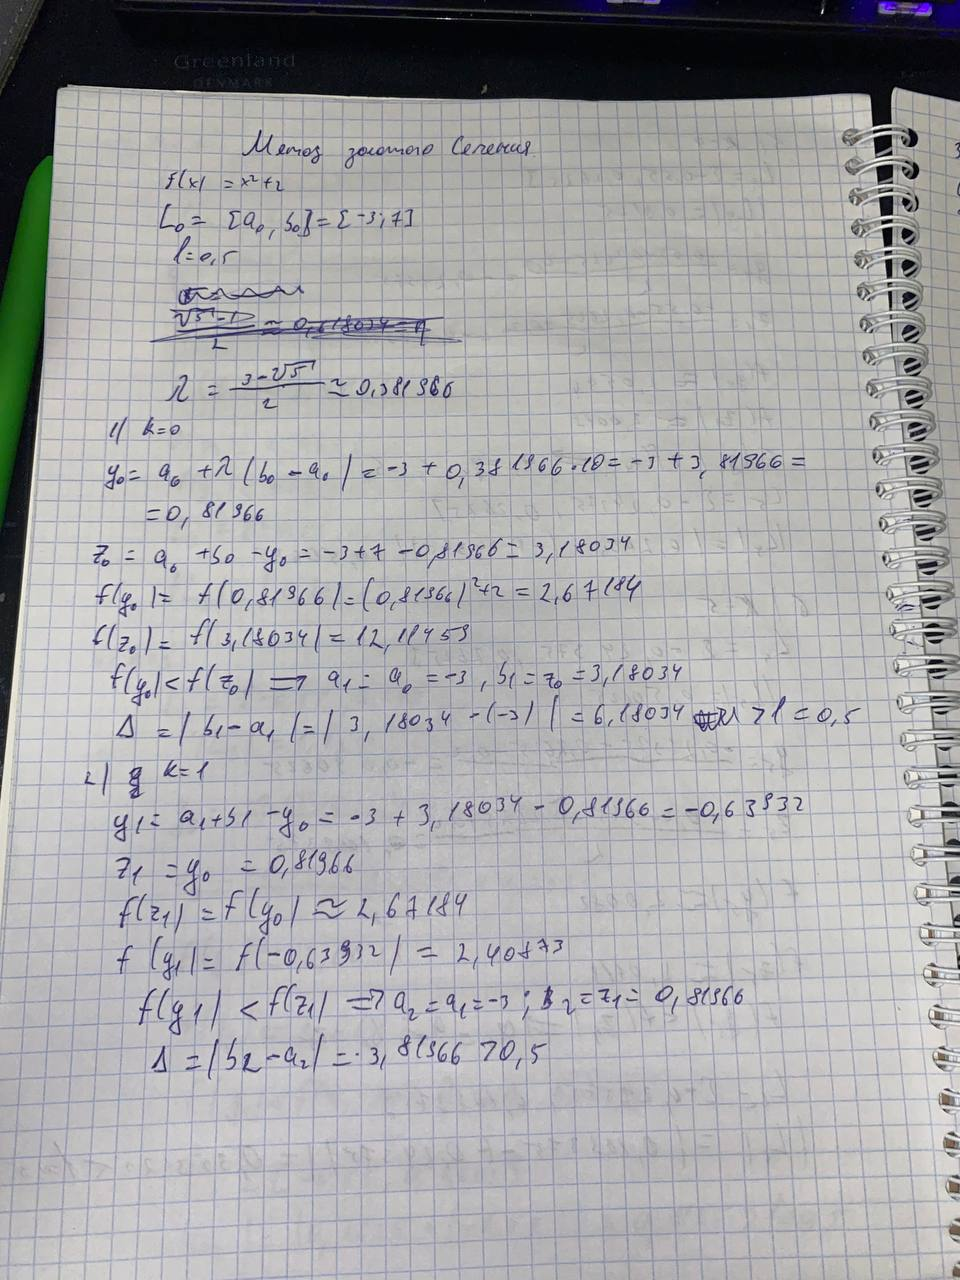 Greenland
DENMARK
Метод золотого Сечения
f(x) = x²+2
L₀ = [a₀, b₀] = [-3; 7]
l=0,5
√5-1 / 2 ≈ 0,618034 =
λ = 3-√5 / 2 ≈ 0,381966
1) k=0
y₀ = a₀ + λ(b₀ - a₀) = -3 + 0,381966·10 = -3 + 3,81966 =
= 0,81966
z₀ = a₀ + b₀ - y₀ = -3+7 - 0,81966 = 3,18034
f(y₀) = f(0,81966) = (0,81966)²+2 = 2,67184
f(z₀) = f(3,18034) = 12,11459
f(y₀) < f(z₀) ⇒ a₁ = a₀ = -3, b₁ = z₀ = 3,18034
Δ = |b₁ - a₁| = |3,18034 - (-3)| = 6,18034 > l = 0,5
2) k=1
y₁ = a₁+b₁ - y₀ = -3 + 3,18034 - 0,81966 = -0,63932
z₁ = y₀ = 0,81966
f(z₁) = f(y₀) ≈ 2,67184
f(y₁) = f(-0,63932) = 2,40873
f(y₁) < f(z₁) ⇒ a₂ = a₁ = -3; b₂ = z₁ = 0,81966
Δ = |b₂ - a₂| = 3,81966 > 0,5